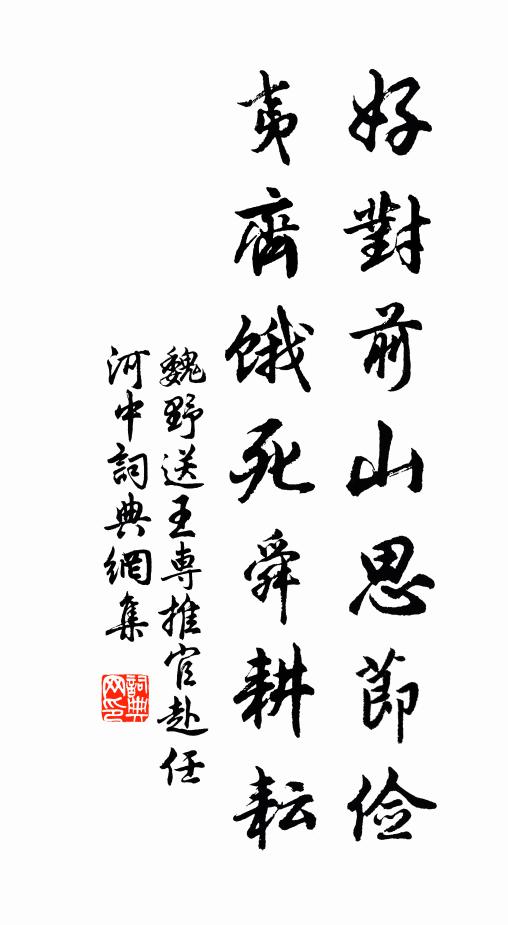 好對前山思節儉
夷齊餓死舜耕耘
魏野送王專推官赴任
河中詞典網集
詞典網印